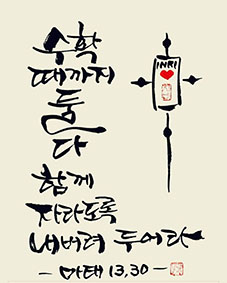 수확
때까지
둘
다
함께
자라도록
내버려 두어라
- 마태 13,30 -
INRI